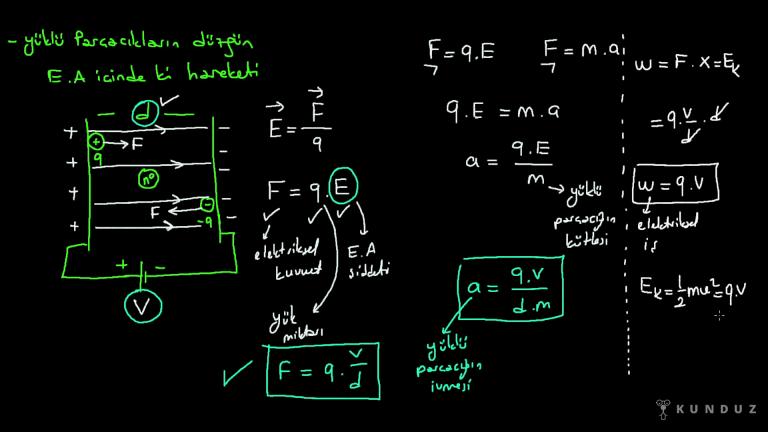 - yüklü Parçacıkların düzgün
E.A içinde ki hareketi
— d —
+ → F
q
n⁰
F ← -
-q
+ -
V
E = F / q
F = q.E
elektriksel kuvvet
E.A şiddeti
yük miktarı
F = q.V/d
F = q.E
F = m.a
q.E = m.a
a = q.E / m
yüklü parçacığın kütlesi
a = q.V / d.m
yüklü parçacığın ivmesi
W = F.x = Eₖ
= q.V/d.d
W = q.V
elektriksel iş
Eₖ = 1/2 mv² = q.V
KUNDUZ